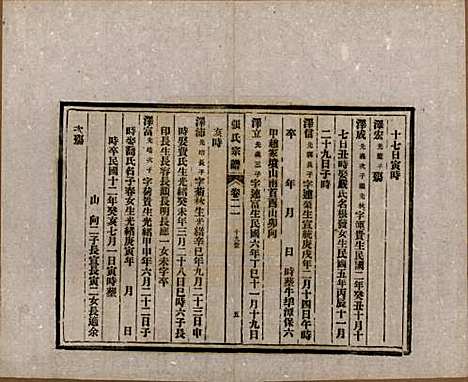 十七日寅時
澤宏 光龍子 殤
澤成 光義次子繼光秋 字頌貴生民國二年癸丑十月十
七日丑時娶嚴氏名根發女生民國五年丙辰十一月
二十九日子時
澤信 光興長子 字連榮生宣統庚戌年二月十四日午時
卒 年 月 日 時葬牛埠潭保六
甲趙家墳山南首酉山卯向
澤立 光義三子 字連富生民國六年丁巳十一月十九日
亥時
張氏宗譜 卷二二 五
澤浦 光培長子 字菊秋生光緒辛巳年九月二十三日申
時娶費氏生光緒癸未年三月二十八日巳時六子長
印長生長容長根長明長總一女未字卒
澤富 光培次子 字菊貴生光緒甲申年六月二十二日子
時娶顧氏名子春女生光緒庚寅年 月 日
時卒民國十二年癸亥七月一日寅時葬
山 向二子長宣長寅二女長適余
次殤